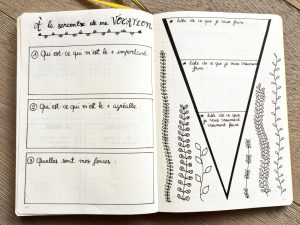 À la rencontre de ma VOCATION
① Qui est-ce qui m'est le + important :
② Qui est-ce qui m'est le + agréable :
③ Quelles sont mes forces :
* liste de ce que je peux faire :
* liste de ce que je veux vraiment
faire :
* liste de ce que
je veux vraiment
faire :